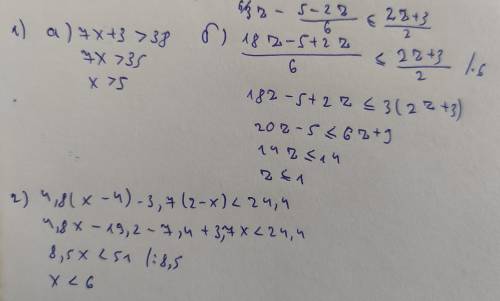 1) а) 7x+3 >38
7x >35
x >5
б) 3z - 5-2z/6 ≤ 2z+3/2
18z-5+2z/6 ≤ 2z+3/2 /·6
18z-5+2z ≤ 3(2z+3)
20z-5 ≤ 6z+9
14z ≤ 14
z ≤ 1
2) 4,8(x-4)-3,7(2-x)<24,4
4,8x-19,2-7,4+3,7x<24,4
8,5x<51 /:8,5
x<6